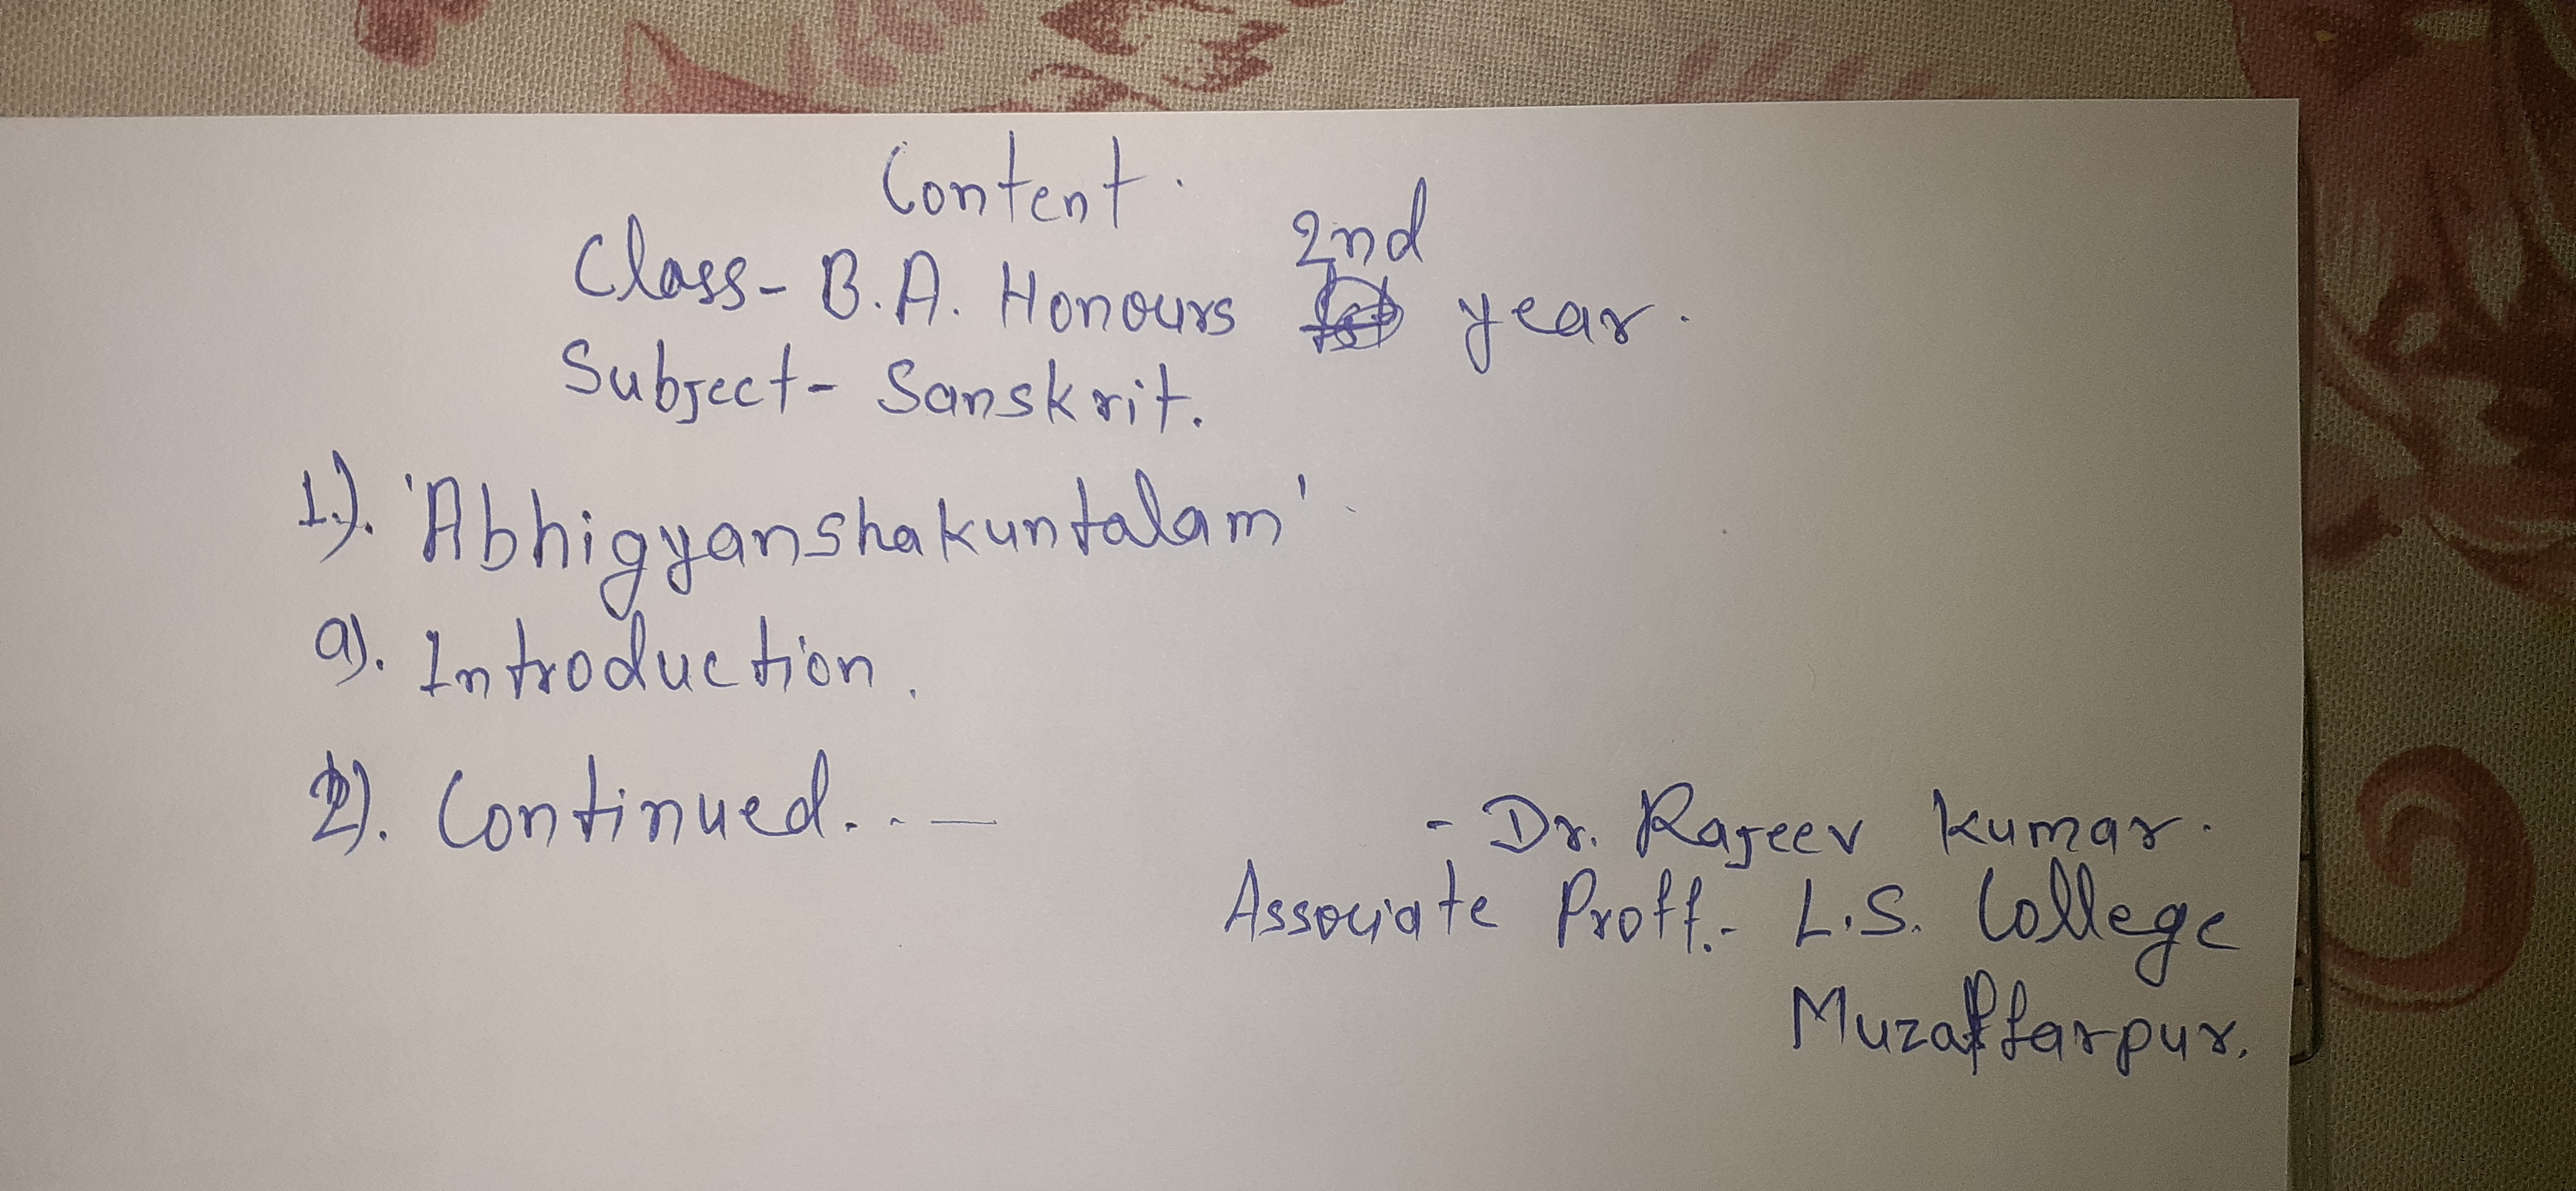 Content.
Class- B.A. Honours 2nd year.
Subject- Sanskrit.
1.). 'Abhigyanshakuntalam'.
a). Introduction.
2). Continued. . . —
- Dr. Rajeev Kumar.
Associate Proff.- L.S. College
Muzaffarpur.